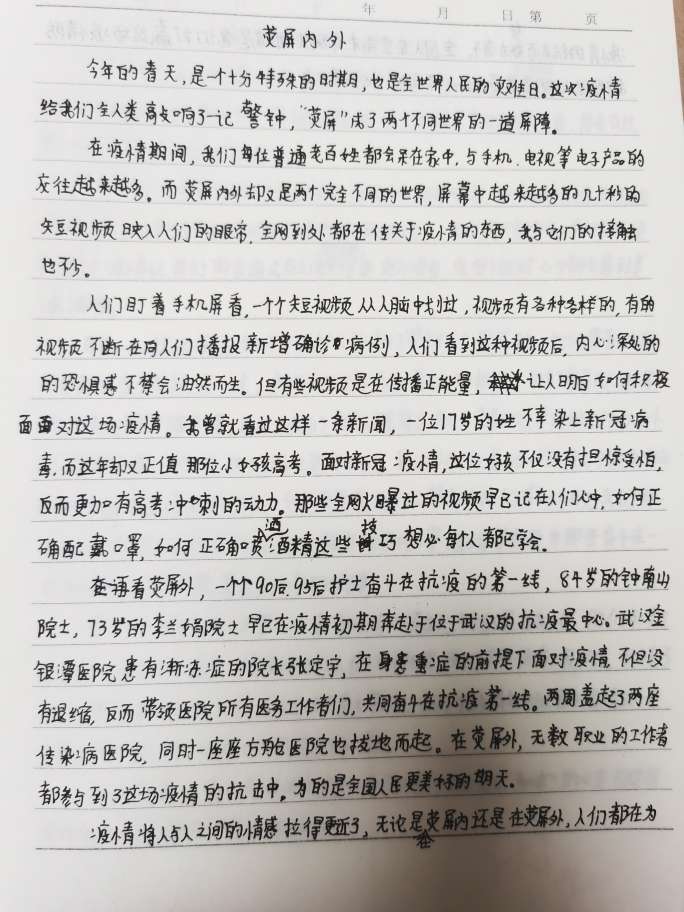 年 月 日 第 页
荧屏内外
今年的春天，是一个十分特殊的时期，也是全世界人民的灾难日。这次疫情
给我们全人类敲响了一记警钟，"荧屏"成了两个不同世界的一道屏障。
在疫情期间，我们每位普通老百姓都会呆在家中，与手机、电视等电子产品的
交往越来越多。而荧屏内外却又是两个完全不同的世界，屏幕中越来越多的几十秒的
短视频映入人们的眼帘，全网到处都在传关于疫情的东西，我与它们的接触
也不少。
人们盯着手机屏看，一个个短视频从人脑中划过，视频有各种各样的，有的
视频不断在向人们播报新增确诊病例，人们看到这种视频后，内心深处的
的恐惧感不禁会油然而生。但有些视频是在传播正能量，让人明白如何积极
面面对这场疫情。我曾就看过这样一条新闻，一位17岁的姓不幸染上新冠病
毒，而这年却又正值那位小女孩高考。面对新冠疫情，这位女孩不仅没有担惊受怕，
反而更加有高考冲刺的动力。那些全网火爆过的视频早已记在人们心中，如何正
确配戴口罩，如何正确喷洒酒精这些技巧想必每个人都已学会。
再看荧屏外，一个个90后、95后护士奋斗在抗疫的第一线，84岁的钟南山
院士，73岁的李兰娟院士早已在疫情初期奔赴于位于武汉的抗疫最中心。武汉金
银潭医院患有渐冻症的院长张定宇，在身患重症的前提下面对疫情，不但没
有退缩，反而带领医院所有医务工作者们，共同奋斗在抗疫第一线。两周盖起了两座
传染病医院，同时一座座方舱医院也拔地而起。在荧屏外，无数职业的工作者
都参与到了这场疫情的抗击中。为的是全国人民更美好的明天。
疫情将人与人之间的情感拉得更近了，无论是在荧屏内还是在荧屏外，人们都在为